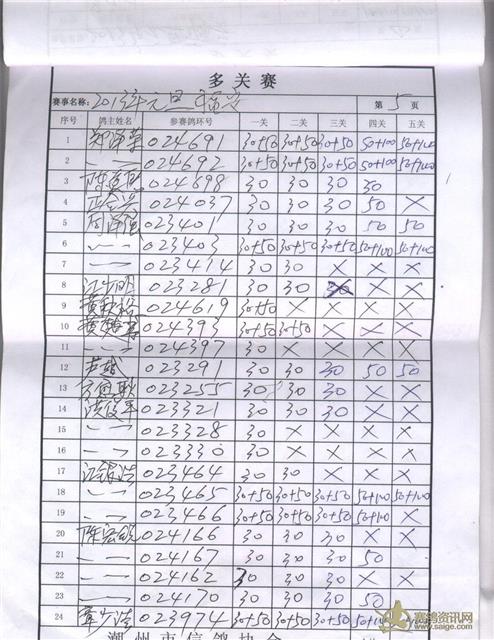 多关赛
赛事名称: 2013年元旦 第5页
序号 鸽主姓名 参赛鸽环号 一关 二关 三关 四关 五关
1 郑泽荣 024691 30+50 30+50 30+50 50+100 50+100
2 〃 024692 30+50 30+50 30+50 50+100 50+100
3 024698 30 30 30 30
4 024037 30 30 30 50 ×
5 023401 30 30 30 50 50
6 〃 023403 30+50 30+50 30+50 50+100 50+100
7 〃 023414 30 30 × × ×
8 023281 30 30 × ×
9 024619 30+50 × × × ×
10 024393 30+50 30+50 × × ×
11 〃 024397 30 × × × ×
12 023291 30 30 30 50 50
13 023255 30 30 30 × ×
14 023321 30 30 30 × ×
15 〃 023328 30 × × × ×
16 〃 023330 30 × × × ×
17 023464 30 30 × × ×
18 〃 023465 30+50 30+50 30+50 50+100 50+100
19 〃 023466 30+50 30+50 30+50 50+100 ×
20 024166 30 30 30 × ×
21 〃 024167 30 30 30 50
22 〃 024162 30 30 30 × ×
23 〃 024170 30 30 30 50
24 023974 30+50 30+50 30+50 50+100
潮州市信鸽协会
赛鸽资讯网
www.saige.com